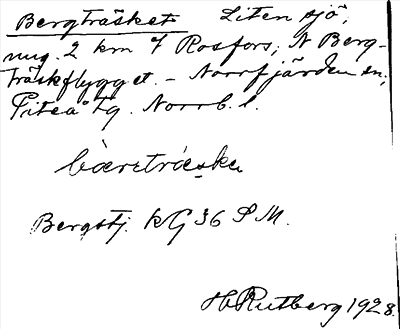 Bergträsket Liten sjö,
nug. 2 km V Rosfors, N Berg-
träskflygget. - Norrfjärden sn,
Piteå tg. Norrb. l.
Bergstj. kG 36 S M.
H Rutberg 1928.